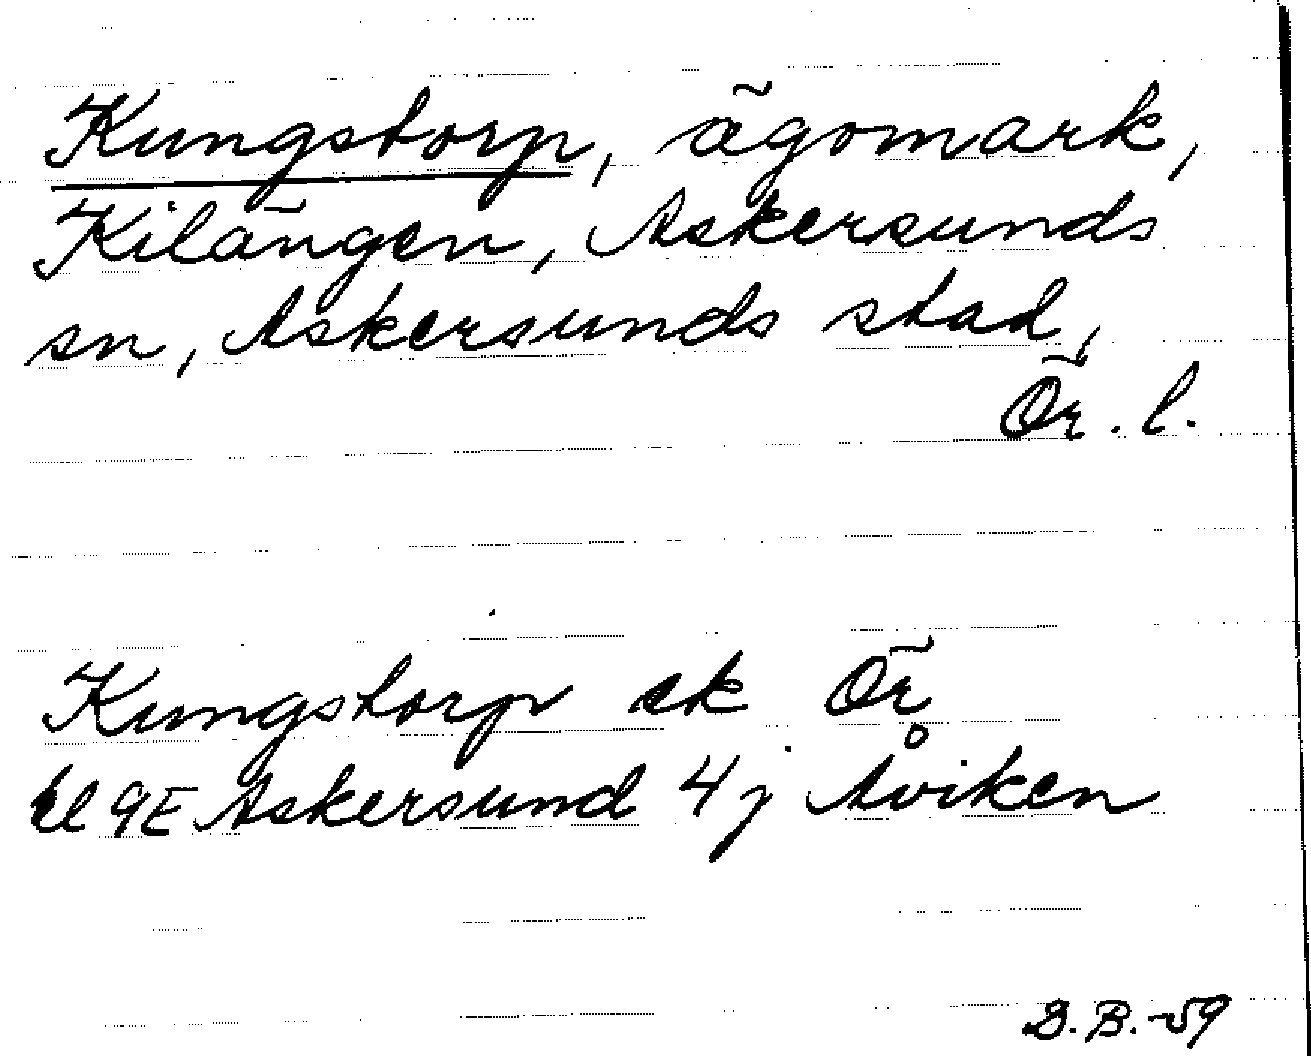 Kungstorp, ägomark,
Kilängen, Askersunds
sn, Askersunds stad,
Ör. l.
Kungstorp ek Ör
bl 9E Askersund 4 j Åviken
D.B.-59